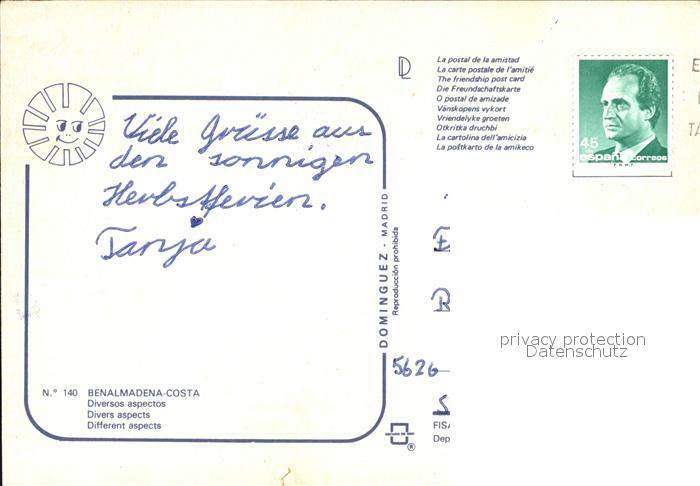 Viele Grüsse aus
den sonnigen
Herbstferien.
Tanja
Nº 140 BENALMADENA-COSTA
Diversos aspectos
Divers aspects
Different aspects
DOMINGUEZ - MADRID
Reproducción prohibida
La postal de la amistad
La carte postale de l'amitié
The friendship post card
Die Freundschaftskarte
O postal de amizade
Vänskopens vykort
Vriendelyke groeten
Otkritka druchbi
La cartolina dell'amicizia
La poŝtkarto de la amikeco
45
españa correos
F.N.M.T.
E
TA
E
R
5626
S
FISA
Dep
privacy protection
Datenschutz